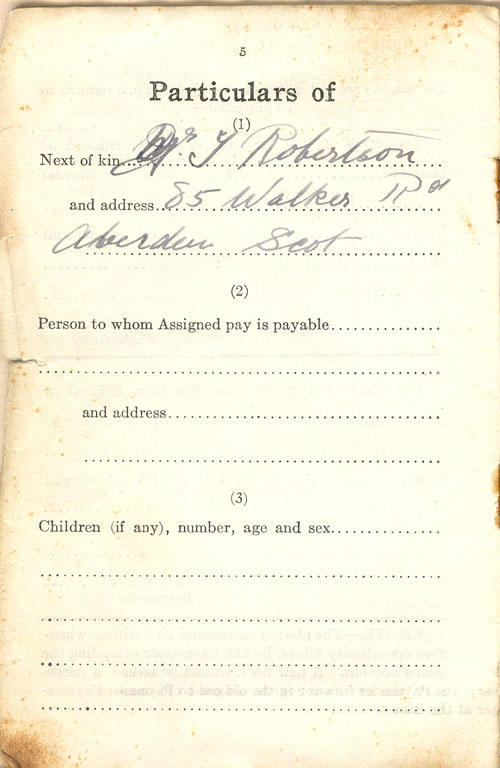 5
Particulars of
(1)
Next of kin Mrs J Robertson
and address.. 85 Walker Rd
Aberdeen Scot
(2)
Person to whom Assigned pay is payable...............
and address
(3)
Children (if any), number, age and sex...............